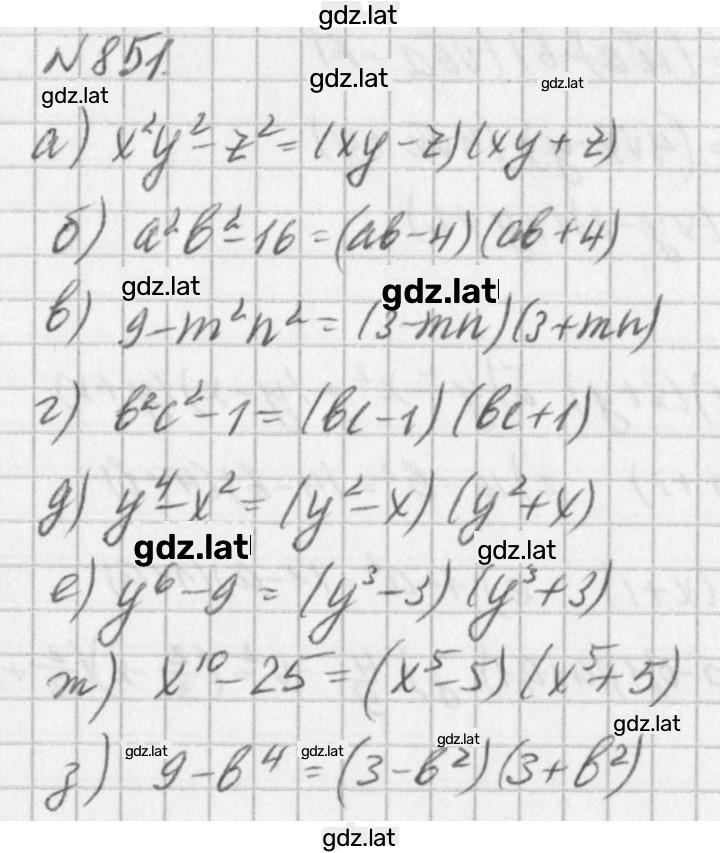 gdz.lat
№ 851.
gdz.lat gdz.lat gdz.lat
а) x²y² - z² = (xy - z)(xy + z)
б) a²b² - 16 = (ab - 4)(ab + 4)
gdz.lat gdz.lat
в) 9 - m²n² = (3 - mn)(3 + mn)
г) b²c² - 1 = (bc - 1)(bc + 1)
д) y⁴ - x² = (y² - x)(y² + x)
gdz.lat gdz.lat
е) y⁶ - 9 = (y³ - 3)(y³ + 3)
ж) x¹⁰ - 25 = (x⁵ - 5)(x⁵ + 5)
gdz.lat
gdz.lat gdz.lat gdz.lat
з) 9 - b⁴ = (3 - b²)(3 + b²)
gdz.lat